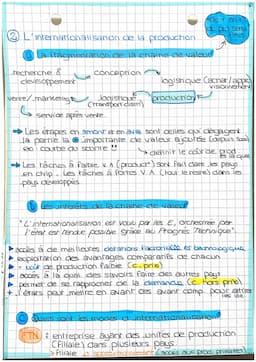 ② L'internationalisation de la production
a La fragmentation de la chaîne de valeur
recherche & développement
conception
logistique (achat / appro visionnement
production
logistique (transport
vente / marketing
service après vente
→ Les étapes en amont et en aval sont celles qui dégagent
la partie la + importante de valeur ajoutée (depuis
ce courbe du sourire !!
→ Les tâches à faible V.A (product°) sont fait dans les pays
en chip. Les tâches à fortes V.A (tout le reste) dans les
pays développés.
b Les intérêts de la chaîne de valeur
"L'internationalisation est voulu par les E, orchestrée par
l'état est rendue possible grâce au Progrès Technique".
accès à de meilleures
exploitation des avantages comparatifs de chacun
- coût de production faible (c. prix)
accès à la quali des savoirs faire des autres pays
permet de se rapprocher de la demande (c. hors prix)
l'états peut mettre en avant ces avant comp. pour attirer
les
c Quels sont les modes d'internationalisation
FTN : entreprise ayant des unités de production
(filiale) dans plusieurs pays
Filiale